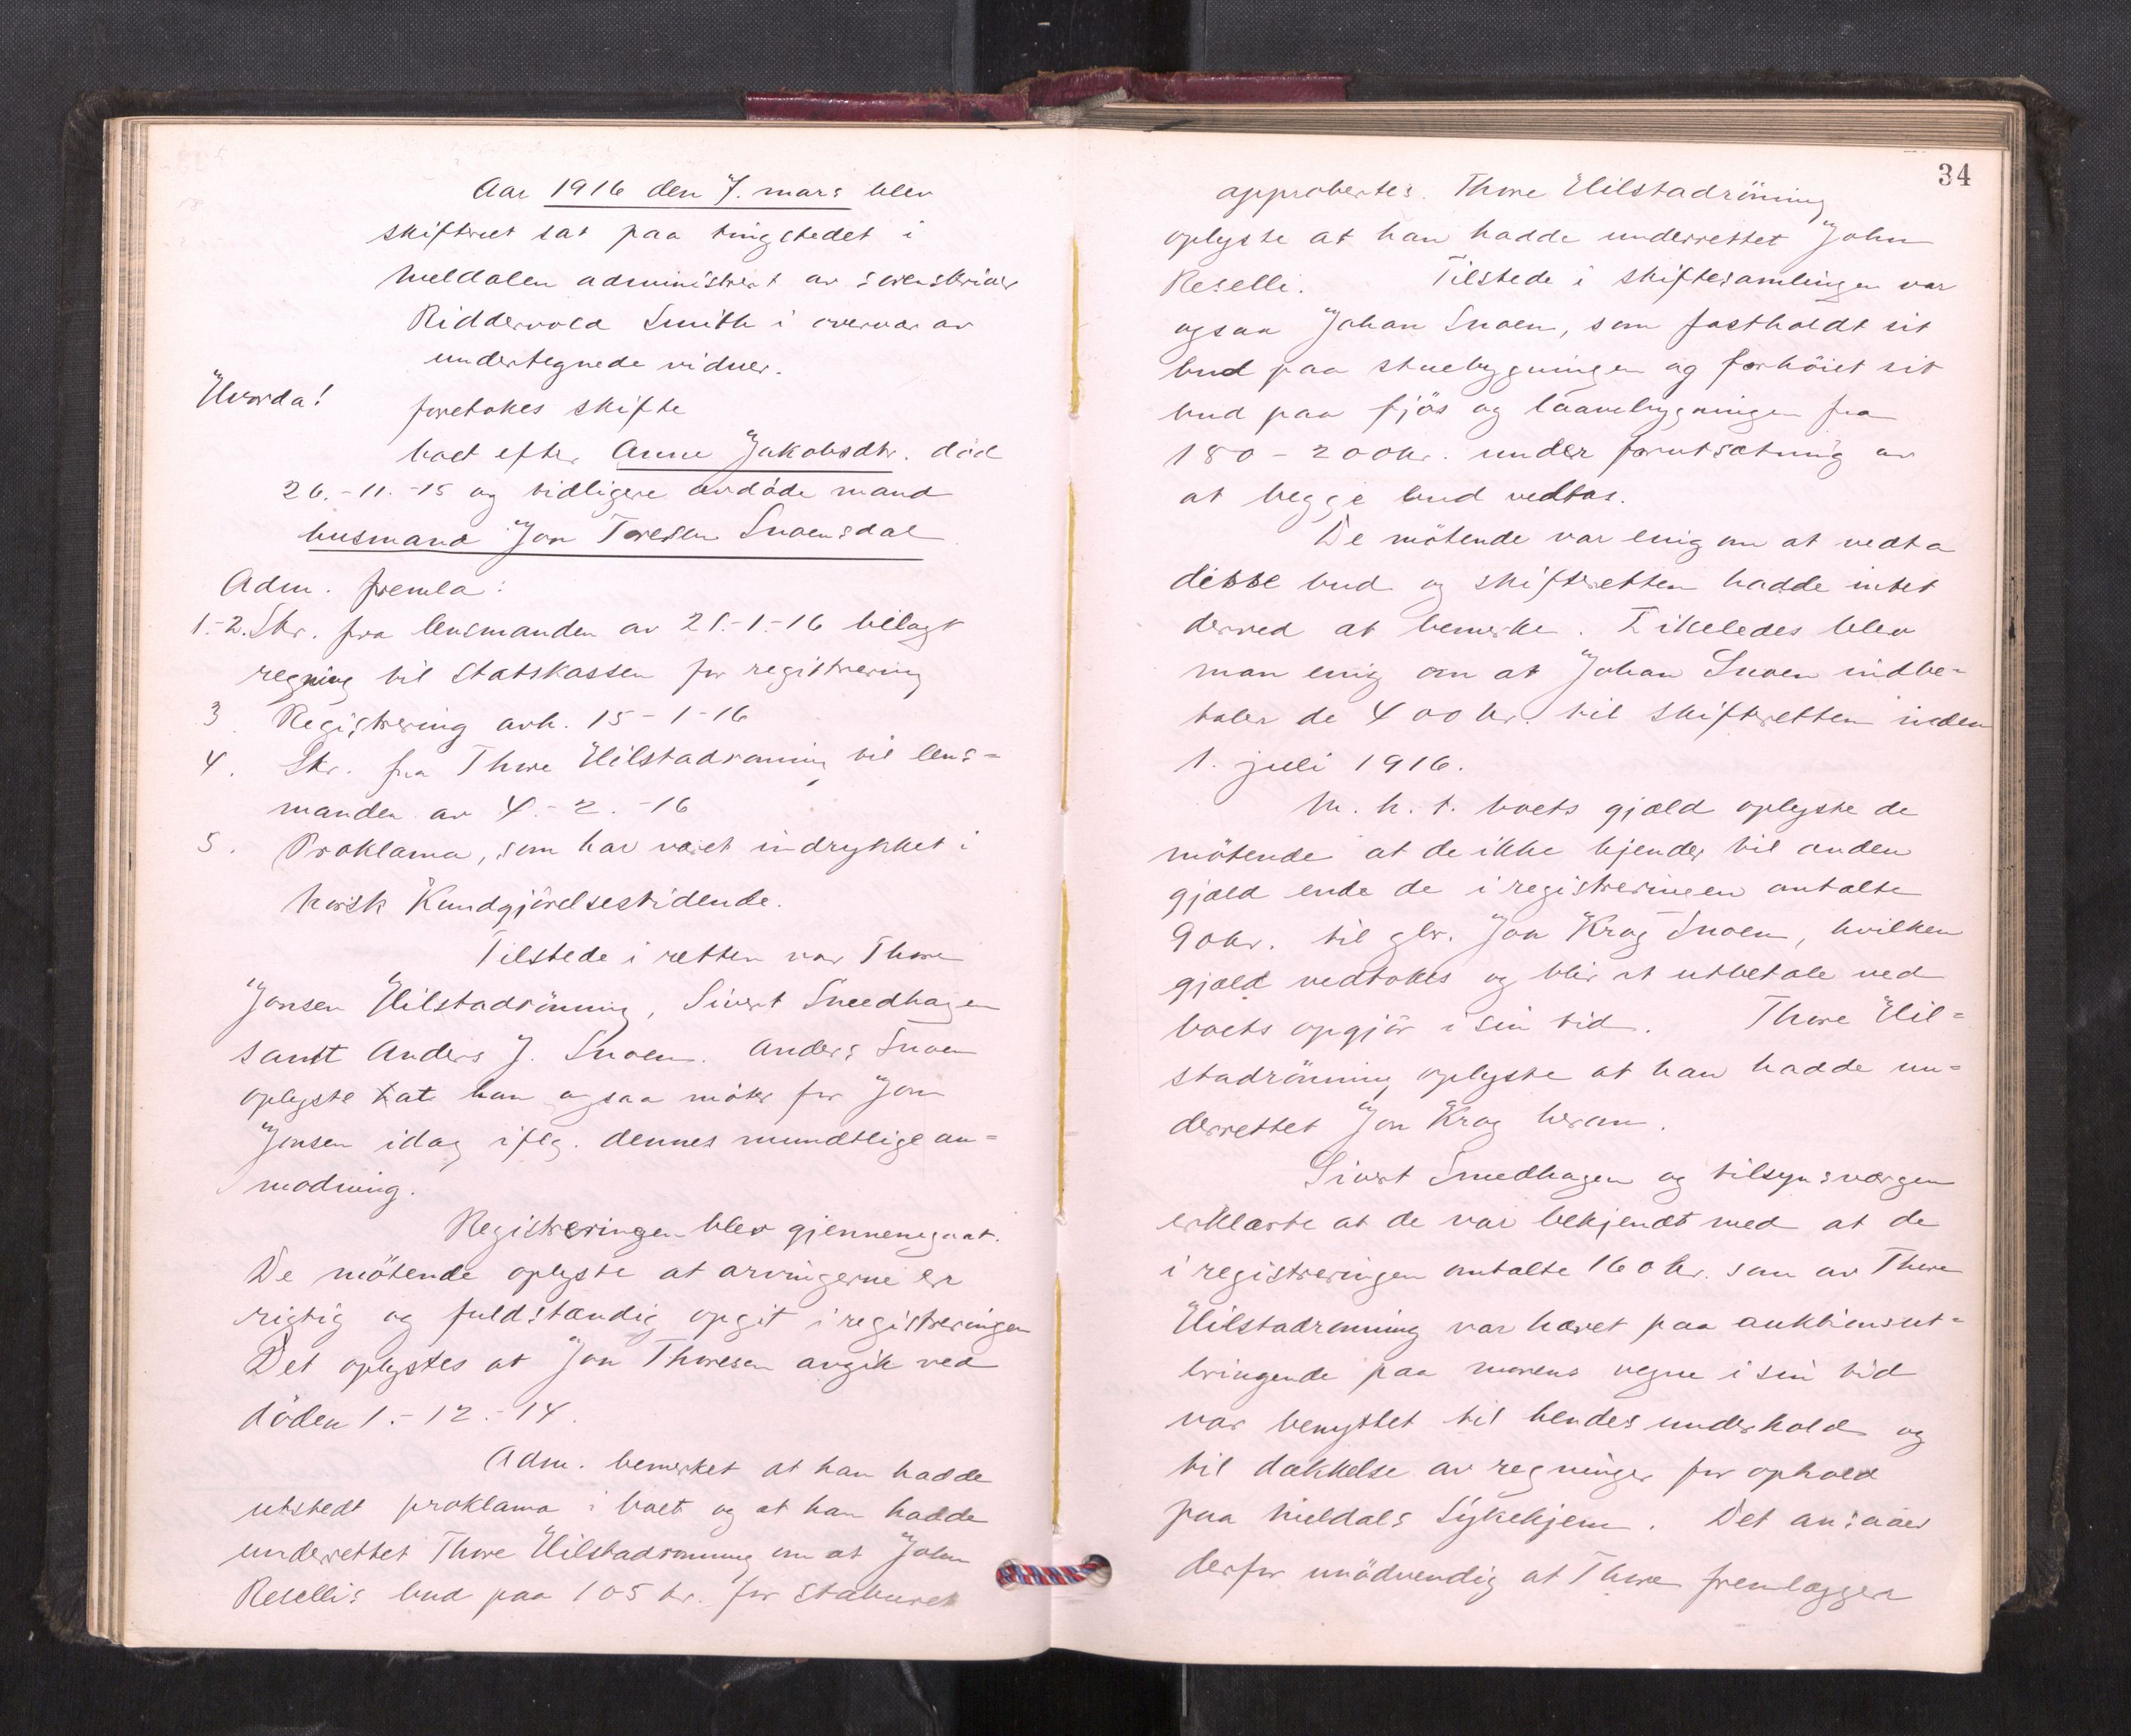 Aar 1916 den 7. mars blev
skifteret sat paa tingstedet i
Meldalen administrert av sorenskriver
Riddervold Smith i overvær av
undertegnede vidner.
Hvorda!
foretokes skifte
boet efter Anne Jakobsdtr. död
26.-11.-15 og tidligere avdöde mand
husmand Jon Toresen Snoensdal
Adm. fremla:
1.-2. Skr. fra lensmanden av 21.-1.-16 bilagt
regning til Statskassen for registrering
3 Registrering avh. 15-1-16
4. Skr. fra Thore Hilstadrønning til lens=
manden av 4.-2.-16
5. Proklama, som har været indrykket i
Norsk Kundgjörelsestidende.
Tilstede i retten var Thore
Jonsen Hilstadrönning, Sivert Smedhagen
samt Anders J. Snoen. Anders Snoen
oplyste at han ogsaa möter for Jon
Jonsen idag iflg. dennes mundtlige an=
modning.
Registreringen blev gjennemgaat.
De mötende oplyste at arvingerne er
rigtig og fuldstændig opgit i registreringen
Det oplystes at Jon Thoresen avgik ved
döden 1.-12.-14.
Adm. bemerket at han hadde
utstedt proklama i boet og at han hadde
underrettet Thore Hilstadrønning om at John
Resellis bud paa 105 kr. for stabburet
34
approbertes. Thore Hilstadrönning
oplyste at han hadde underrettet John
Reselli. Tilstede i skiftesamlingen var
ogsaa Johan Snoen, som fastholdt sit
bud paa stuebygningen og forhöiet sit
bud paa fjös og laavebygningen fra
180 - 200 kr. under forutsætning av
at begge bud vedtas.
De mötende var enig om at vedta
disse bud og skifteretten hadde intet
derved at bemerke. Likeledes blev
man enig om at Johan Snoen indbe=
taler de 400 kr. til skifteretten inden
1. juli 1916.
M. h. t. boets gjæld oplyste de
mötende at de ikke kjender til anden
gjæld ende de i registreringen antalte
90 kr. til gbr. Jon Krog Snoen, hvilken
gjæld vedtokes og blir at utbetale ved
boets opgjör i sin tid. Thore Hil=
stadrönning oplyste at han hadde un=
derrettet Jon Krog herom.
Sivert Smedhagen og tilsynsværgen
erklærte at de var bekjendt med at de
i registreringen antalte 160 kr. som av Thore
Hilstadrønning var hævet paa auktionsut=
bringende paa morens vegne i sin tid
var benyttet til hendes underhold og
til dækkelse av regninger for ophold
paa Meldals Sykehjem. Det ansaaes
derfor unödvendig at Thore fremlægger